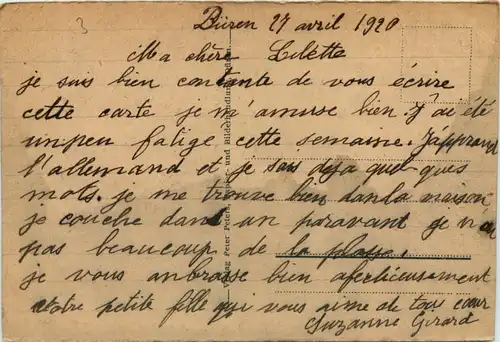 3
Büren 27 avril 1920
Ma chère Lilette
je suis bien contante de vous écrire
cette carte je m'amuse bien. j'ai été
un peu fatige cette semaine. J'apprend
l'allemand et je sais deja quelques
mots. je me trouve bien dan la maison
je couche dans un paravant je n'ai
pas beaucoup de la place.
je vous anbrasse bien afectieusement
votre petite fille qui vous aime de tous cœur
Suzanne Girard